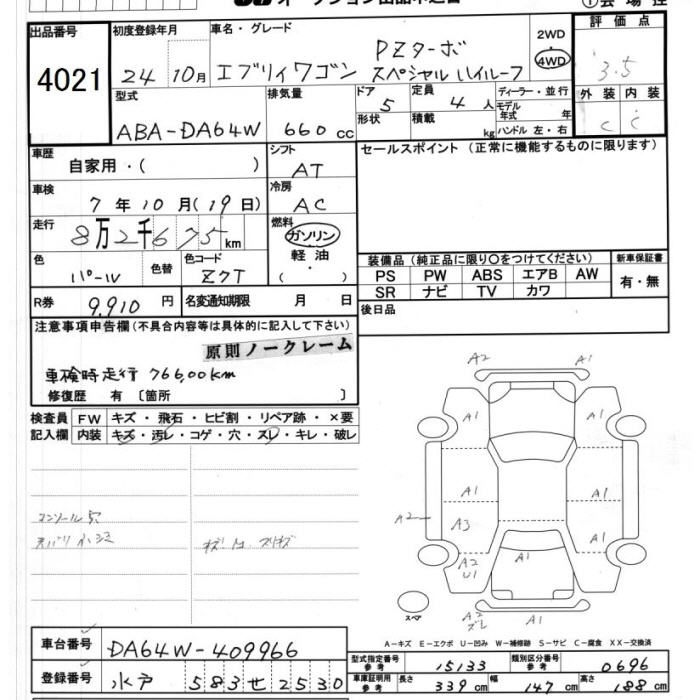 出品番号 4021
初度登録年月 24 10月
車名・グレード エブリィワゴン PZターボ スペシャルハイルーフ
2WD
4WD
評価点 3.5
外装 C 内装 C
型式 ABA-DA64W
排気量 660 cc
ドア 5
形状
定員 4 人
積載 kg
ディーラー・並行
モデル年式 年
ハンドル 左・右
車歴 自家用・( )
シフト AT
セールスポイント (正常に機能するものに限ります)
車検 7年10月(19日)
冷房 AC
走行 8万2千675km
燃料 ガソリン
軽油
・
( )
色 パール
色替
色コード Z7T
装備品 (純正品に限り〇をつけてください)
新車保証書
PS PW ABS エアB AW
有・無
SR ナビ TV カワ
R券 9,910 円
名変通知期限 月 日
後日品
注意事項申告欄 (不具合内容等は具体的に記入して下さい)
原則ノークレーム
車検時走行 76600km
修復歴 有 〔箇所 〕
検査員記入欄
FW キズ・飛石・ヒビ割・リペア跡・×要
内装 キズ・汚レ・コゲ・穴・スレ・キレ・破レ
コンソール穴
A2 A1
A1 A1
A1 A1
A2 A3 A1
A2 U1 A1
A2 スレ A1
スペア
A-キズ E-エクボ U-凹み W-補修跡 S-サビ C-腐食 XX-交換済
車台番号 DA64W-409966
登録番号 水戸 583 せ 2530
型式指定番号 参考 15133
類別区分番号 参考 0696
車庫証明用 参考 長さ 339 cm 幅 147 cm 高さ 188 cm